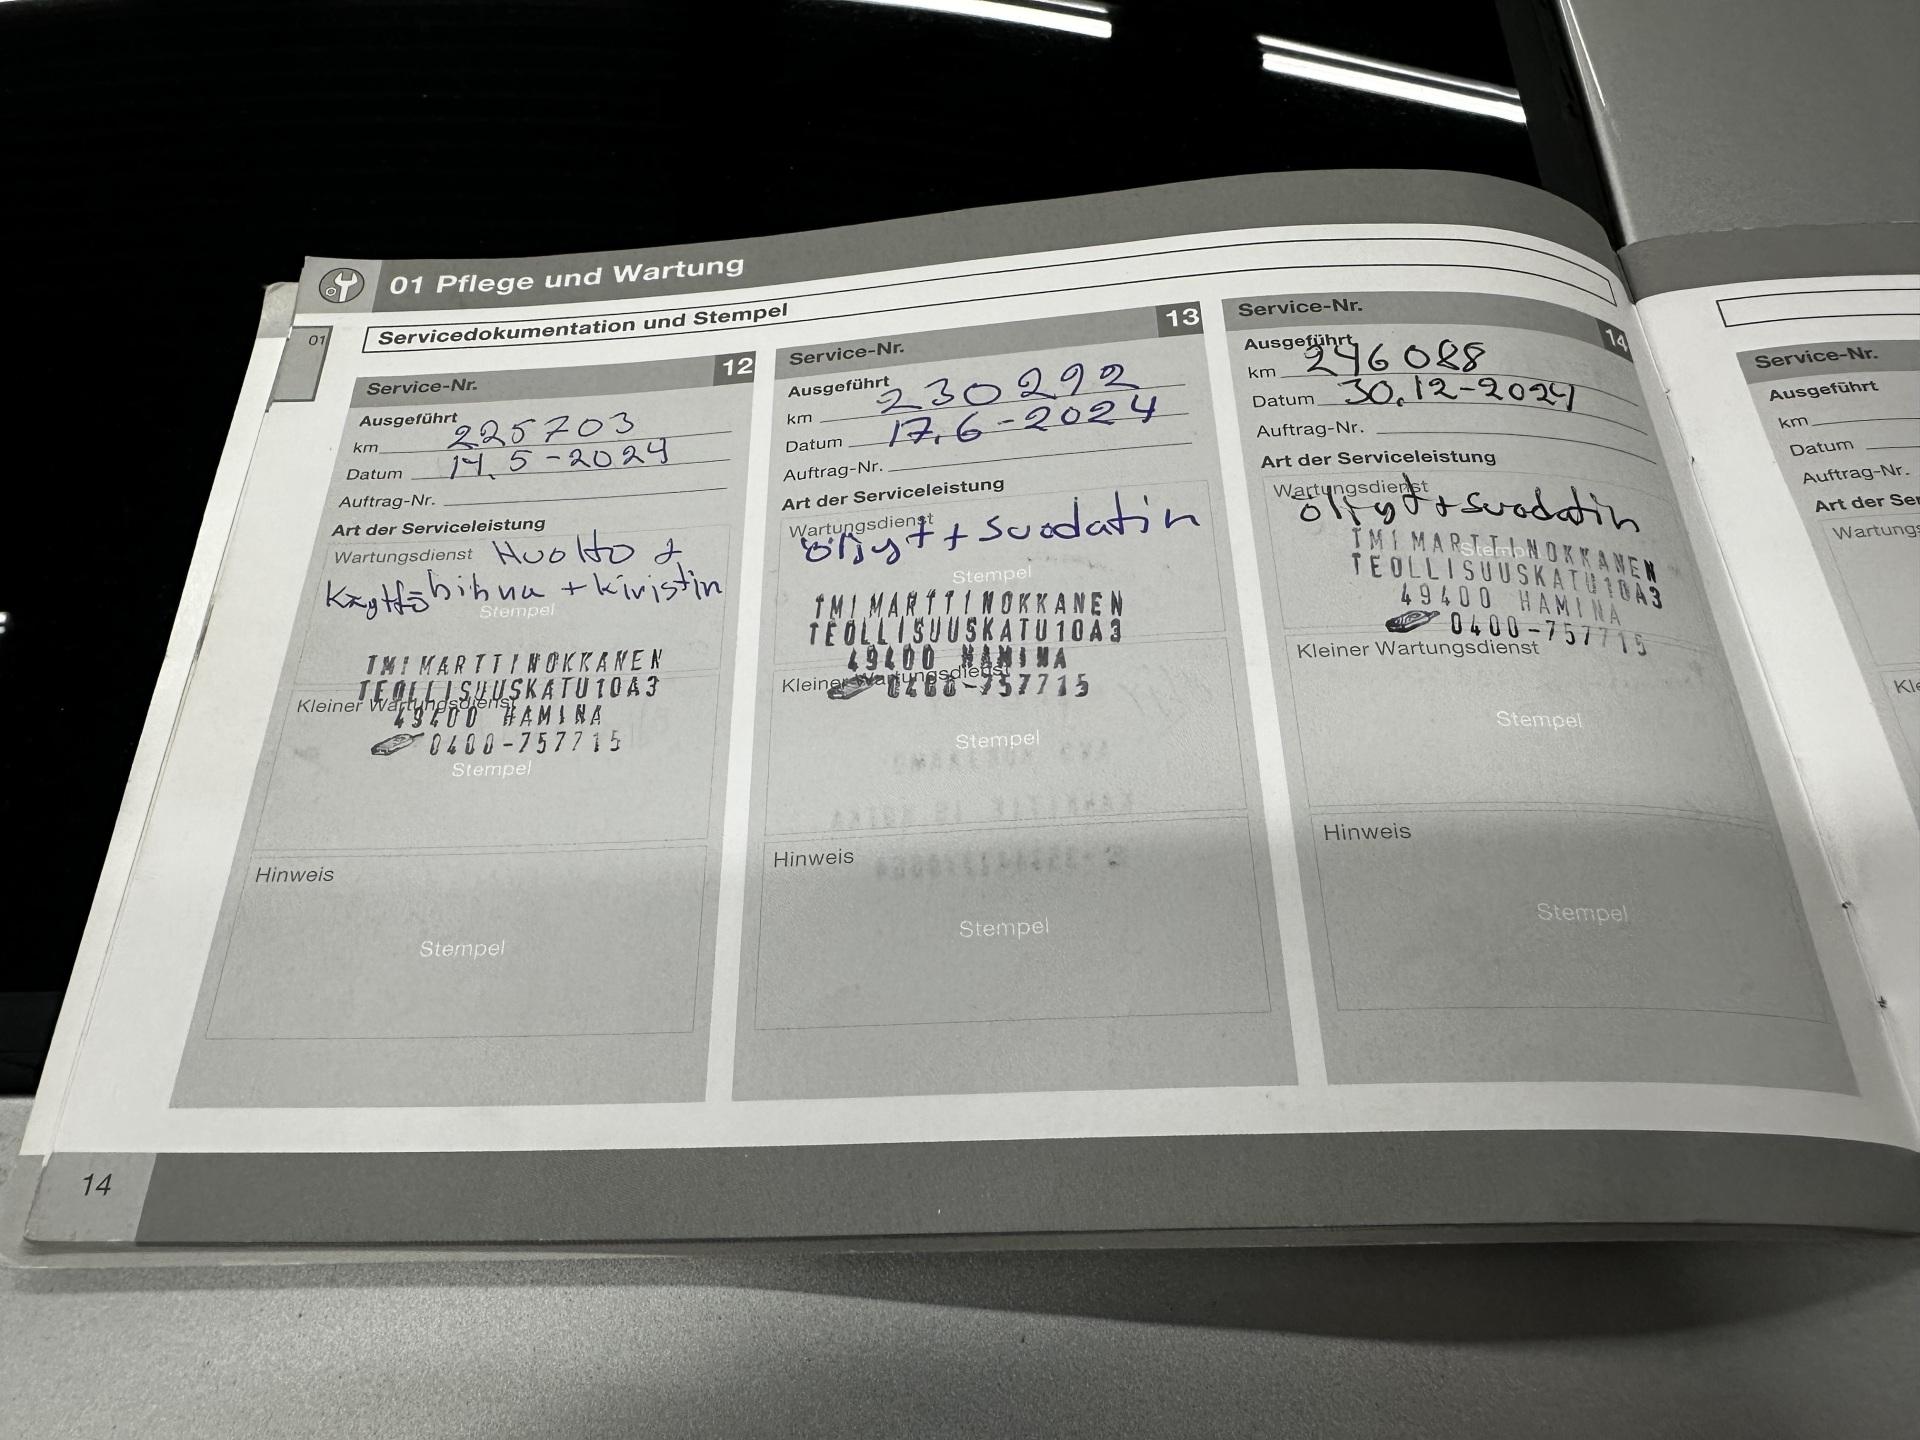 01 Pflege und Wartung
01
Servicedokumentation und Stempel
Service-Nr. 12
Ausgeführt
km 225703
Datum 14.5-2024
Auftrag-Nr.
Art der Serviceleistung
Wartungsdienst Huolto +
Käyttöhihna + kiristin
Stempel
TMI MARTTI NOKKANEN
TEOLLISUUSKATU 10A3
Kleiner Wartungsdienst
49400 HAMINA
0400-757715
Stempel
Hinweis
Stempel
Service-Nr. 13
Ausgeführt
km 230292
Datum 17.6-2024
Auftrag-Nr.
Art der Serviceleistung
Wartungsdienst
öljyt + suodatin
Stempel
TMI MARTTI NOKKANEN
TEOLLISUUSKATU 10A3
49400 HAMINA
Kleiner Wartungsdienst
0400-757715
Stempel
Hinweis
Stempel
Service-Nr. 14
Ausgeführt
km 246088
Datum 30.12-2024
Auftrag-Nr.
Art der Serviceleistung
Wartungsdienst
öljyt + suodatin
Stempel
TMI MARTTI NOKKANEN
TEOLLISUUSKATU 10A3
49400 HAMINA
0400-757715
Kleiner Wartungsdienst
Stempel
Hinweis
Stempel
Service-Nr.
Ausgeführt
km
Datum
Auftrag-Nr.
Art der Ser
Wartungs
Kle
14